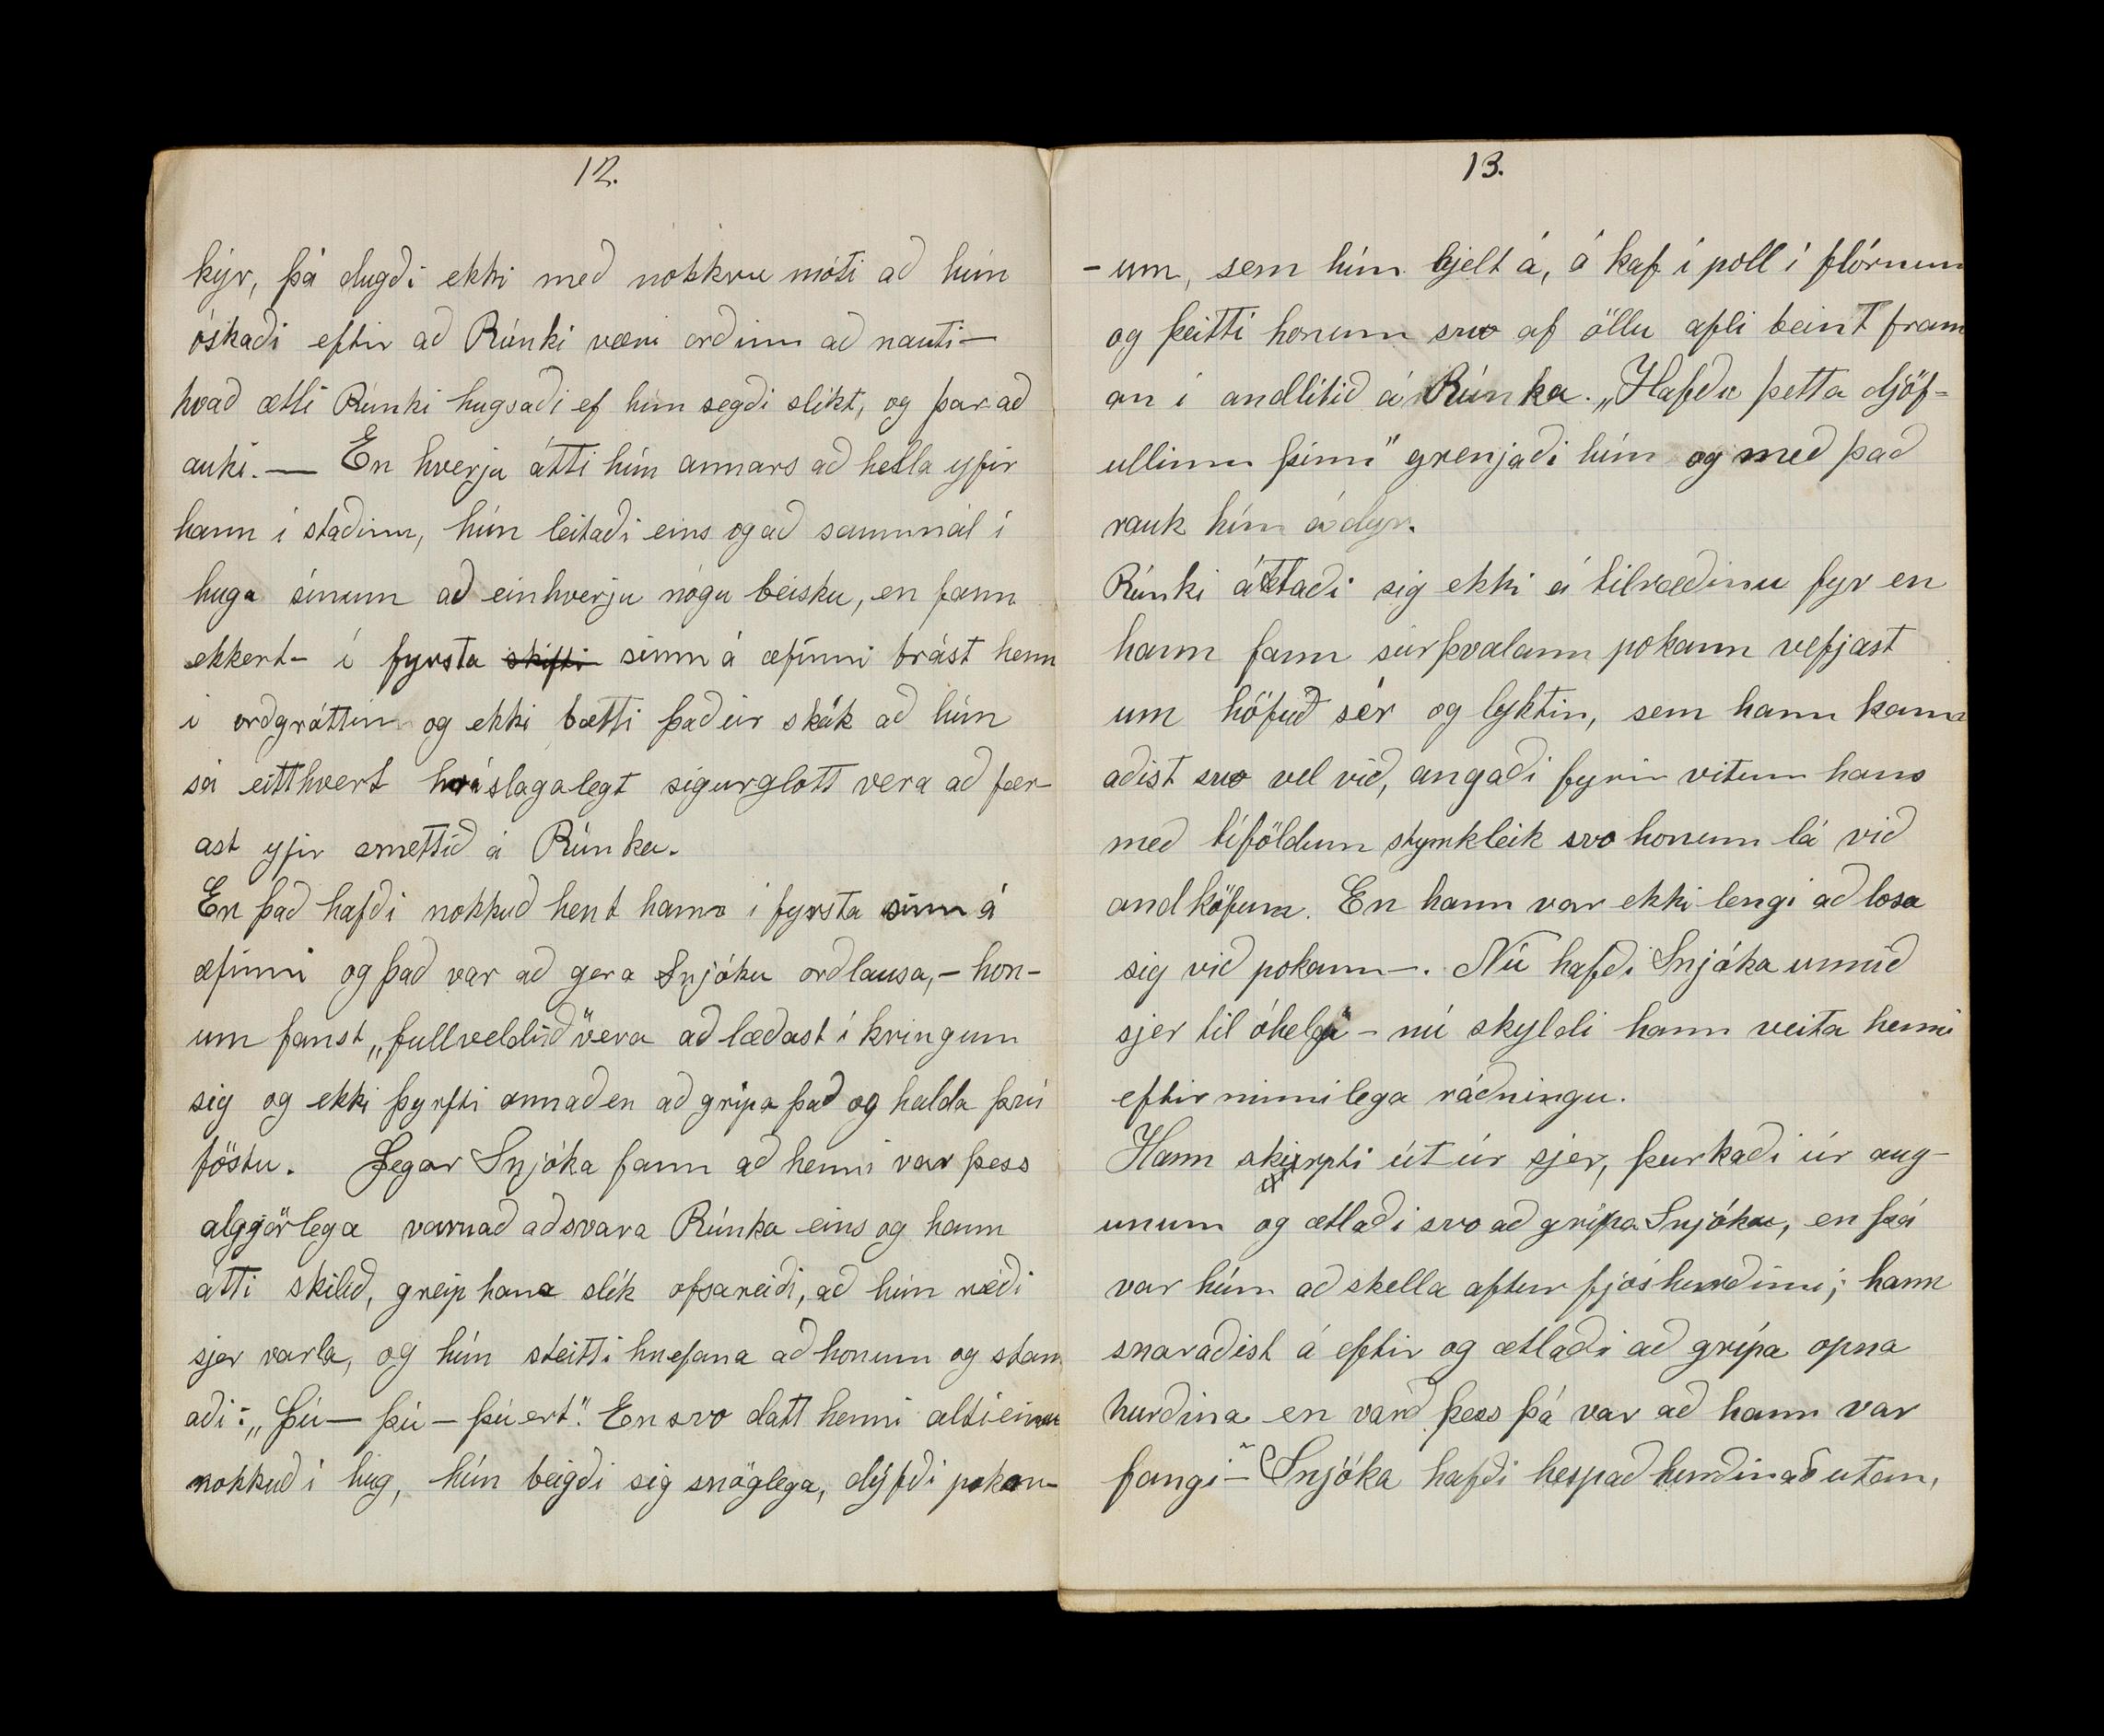 12.
kýr, þá dugði ekki með nokkru móti að hún
óskaði eftir að Rúnki væri orðinn að nauti—
hvað ætli Rúnki hugsaði ef hún segði slíkt, og þar að
auki. — En hverju átti hún annars að hella yfir
hann í staðinn, hún leitaði eins og að saumnál í
huga sínum að einhverju nógu beisku, en fann
ekkert- í fyrsta skifti sinn á æfinni brást henn
i orðgnóttin og ekki bætti það úr skák að hún
sá eitthvert háðslagalegt sigurglott vera að fær-
ast yfir smettið á Rúnka.
En það hafði nokkuð hent hann í fyrsta sinn á
æfinni og það var að gera Snjóku orðlausa, - hon-
um fanst „fullveldið" vera að læðast í kringum
sig og ekki þyrfti annað en að grípa það og halda því
föstu. Þegar Snjóka fann að henni var þess
algjörlega varnað að svara Rúnka eins og hann
átti skilið, greip hana slík ofsareiði, að hún réði
sjer varla, og hún steitti hnefana að honum og stam
aði: „Þú — þú — þú ert". En svo datt henni alt í einu
nokkuð í hug, hún beigði sig snögglega, dýfði pokan-
13.
- um, sem hún hjelt á, á kaf í poll í flórnum
og þeitti honum svo af öllu afli beint fram
an í andlitið á Rúnka. „Hafðu þetta djöf-
ullinn þinn" grenjaði hún og með það
rauk hún á dyr.
Rúnki áttaði sig ekki á tilræðinu fyr en
hann fann súrþvalann pokann vefjast
um höfuð sér og lyktin, sem hann kann
aðist svo vel við, angaði fyrir vitum hans
með tíföldum styrkleik svo honum lá við
andköfum. En hann var ekki lengi að losa
sig við pokann—. Nú hafði Snjóka unnið
sjer til óhelgi - nú skyldi hann veita henni
eftirminnilega ráðningu.
Hann skirpti út úr sjer, þurkaði úr aug-
unum og ætlaði svo að grípa Snjóku, en þá
var hún að skella aftur fjóshurðinni; hann
snaraðist á eftir og ætlaði að grípa opna
hurðina en varð þess þá var að hann var
fangi — Snjóka hafði hespað hurðina að utan,